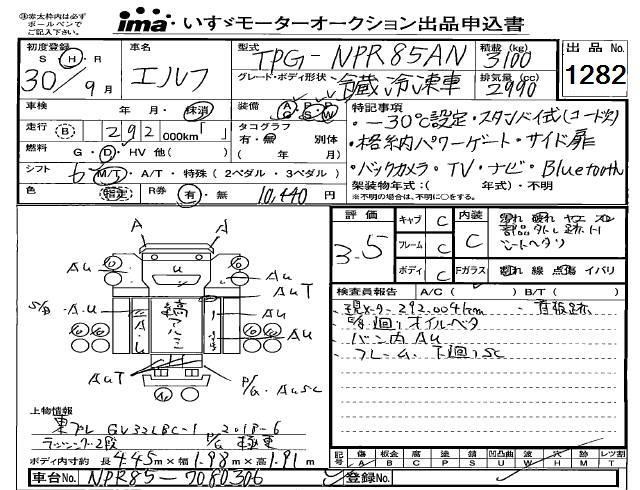 ※太枠内は必ず
ボールペンで
ご記入下さい。
ima・いすゞモーターオークション出品申込書
初度登録 S H R 30/9月
車名 エルフ
型式 TPG-NPR85AN
積載(kg) 3100
グレード・ボディ形状 冷蔵冷凍車
排気量(cc) 2990
出品No. 1282
車検 年 月・抹消
装備 A P P G S W
特記事項
・-30℃設定・スタンバイ式(コード欠)
走行 (B) 292 000km「 」
タコグラフ 有・無 別体
( 年 月)
・格納パワーゲート・サイド扉
燃料 G・D・HV 他( )
シフト 6 M/T・A/T・特殊(2ペダル・3ペダル)
・バックカメラ・TV・ナビ・Bluetooth
色 指定 R券 有・無 10,440円
架装物年式:( 年式)・不明
※架装物の場合は、不明に○をする。
評価 3.5
キャブ C 内装 C
フレーム C
ボディ C Fガラス 割れ 線 点傷 イバリ
シートヘタリ
検査員報告 A/C( ) B/T( )
・現メーター292,004km
下回りオイルベタ
・バン内AU
・フレーム、下回りSC
A A
AU AU
U
AUT
S/B A.U
鎬アルミ
AU
AUT P/G AUSC
上物情報
東プレ GV32LBC-1 2018-6
ラッシング2段 P/G 極東
ボディ内寸約 長4.45m×幅1.98m×高1.91m
記号 傷 A 板金 B 腐 C 凹 P 塗 P 錆 S 凹凸曲 U 波 W 穴 H 跡 M レツ割 T
車台No. NPR85-7080306
登録No.